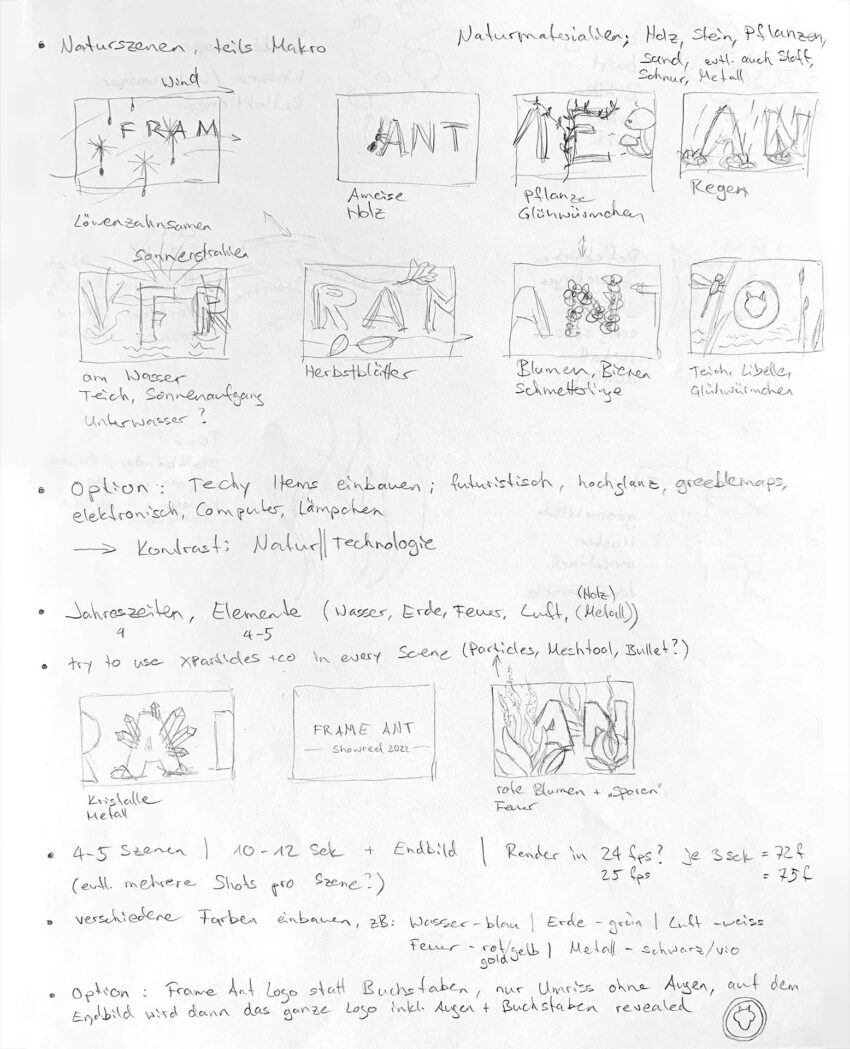 • Naturszenen, teils Makro
Naturmaterialien; Holz, Stein, Pflanzen,
Sand, evtl. auch Stoff,
Schnur, Metall
Wind
FRAM
Löwenzahnsamen
ANT
Ameise
Holz
ME
Pflanze
Glühwürmchen
AN
Regen
Sonnenstrahlen
FR
am Wasser
Teich, Sonnenaufgang
Unterwasser?
RAM
Herbstblätter
ANT
Blumen, Bienen
Schmetterlinge
Teich, Libelle,
Glühwürmchen
• Option: Techy Items einbauen; futuristisch, hochglanz, greeblemaps,
elektronisch, Computer, Lämpchen
→ Kontrast: Natur || Technologie
(Holz)
• Jahreszeiten, Elemente (Wasser, Erde, Feuer, Luft, (Metall))
4 4-5
• try to use XParticles + co in every Scene (Particles, Meshtool, Bullet?)
R A D
Kristalle
Metall
FRAME ANT
— Showreel 2022 —
AN
rote Blumen + „Sporen"
Feuer
• 4-5 Szenen | 10-12 Sek + Endbild | Render in 24 fps? je 3 sek = 72 f
25 fps = 75 f
(evtl. mehrere Shots pro Szene?)
• verschiedene Farben einbauen, zB: Wasser - blau | Erde - grün | Luft - weiss
Feuer - rot/gelb | Metall - schwarz/vio
gold
• Option: Frame Ant Logo statt Buchstaben, nur Umriss ohne Augen, auf dem
Endbild wird dann das ganze Logo inkl. Augen + Buchstaben revealed